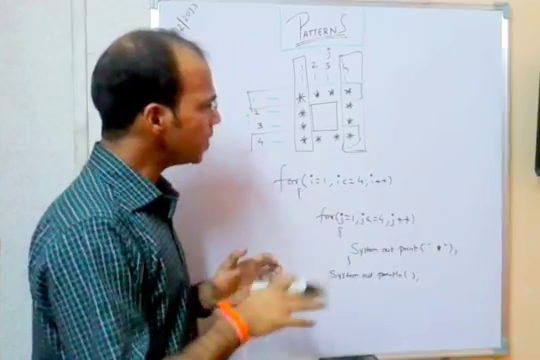 /2013
PATTERNS
j
1 2 3 4
* * * *
2 * *
3 * *
4 * * * *
for(i=1, i<=4, i++)
{
for(j=1, j<=4, j++)
{
System out print(" * "),
}
System out println( ),